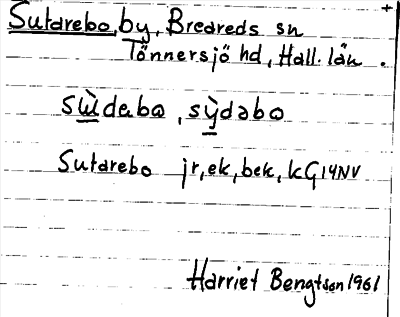 Sutarebo, by, Breareds sn
Tönnersjö hd, Hall. län.
sẁdəbo, sỳdəbo
Sutarebo jr, ek, bek, kG14NV
Harriet Bengtson 1961